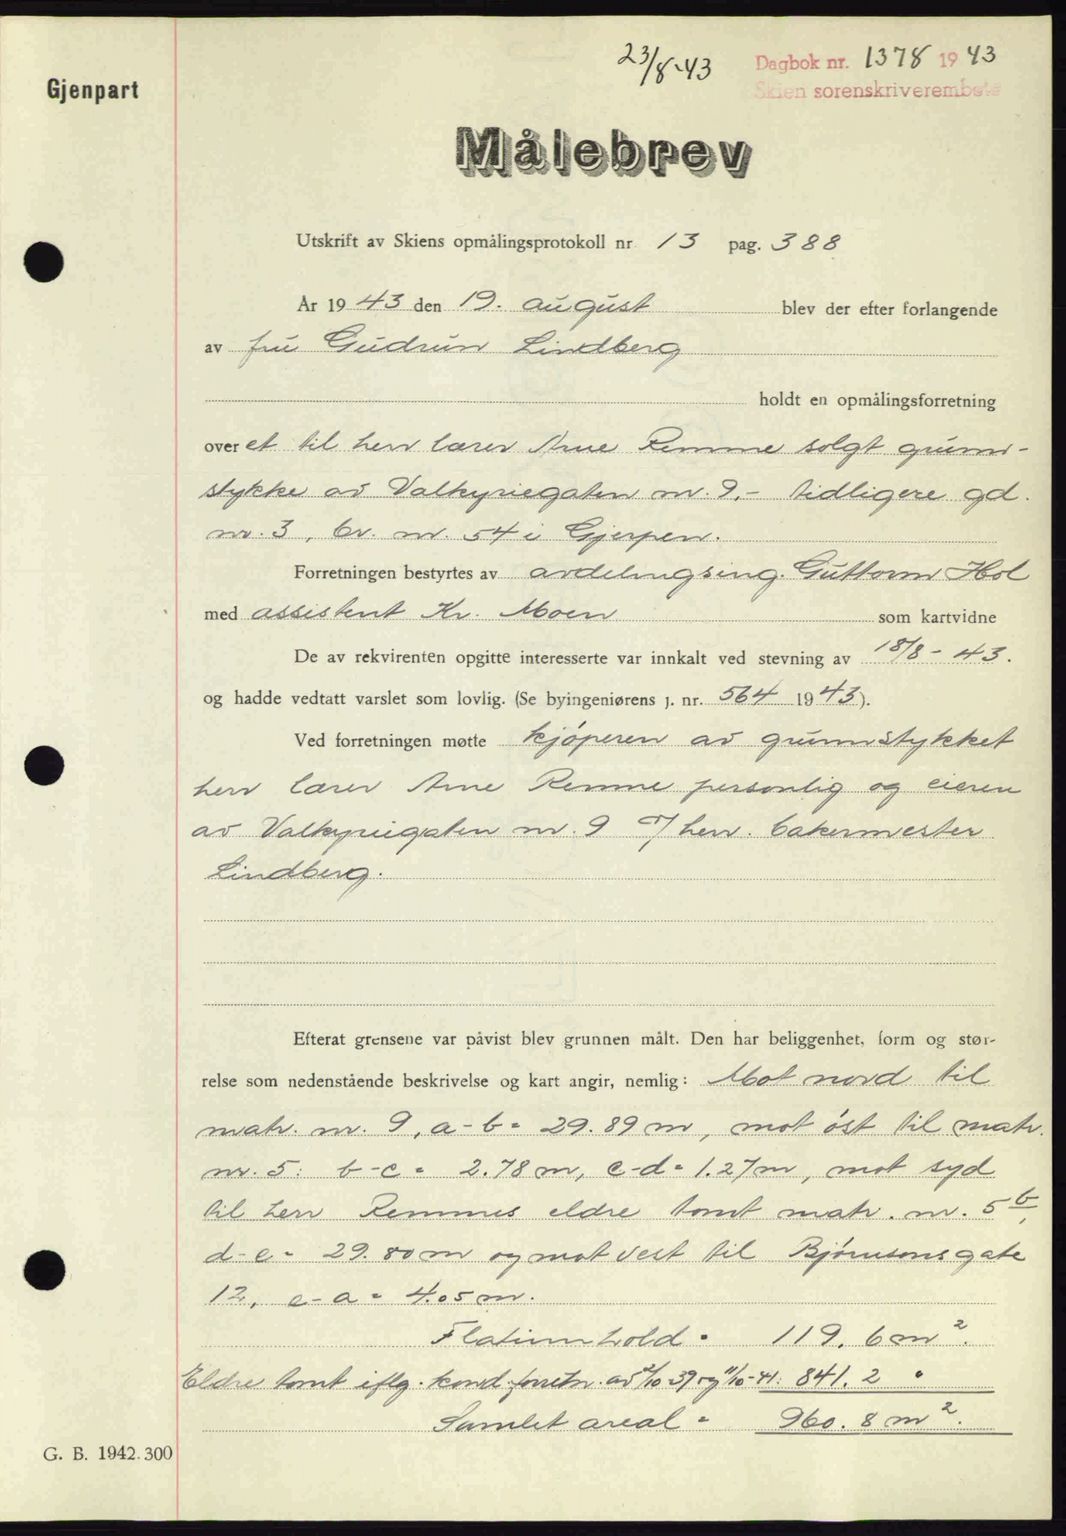 23/8-43
Dagbok nr. 1378 1943
Skien sorenskriverembete
Gjenpart
Målebrev
Utskrift av Skiens opmålingsprotokoll nr 13 pag. 388
År 1943 den 19. august blev der efter forlangende
av fru Gudrun Lindberg
holdt en opmålingsforretning
over et til herr lærer Arne Remme solgt grunn-
stykke av Valkyriegaten nr. 9,- tidligere gd.
nr. 3, br. nr. 54 i Gjerpen.
Forretningen bestyrtes av avdelingsing. Guttorm Hol
med assistent Kr. Moen som kartvidne
De av rekvirenten opgitte interesserte var innkalt ved stevning av 18/8-43.
og hadde vedtatt varslet som lovlig. (Se byingeniørens j. nr. 564 1943).
Ved forretningen møtte kjøperen av grunnstykket
herr lærer Arne Remme personlig og eieren
av Valkyriegaten nr. 9 v/ herr. bakermester
Lindberg.
Efterat grensene var påvist blev grunnen målt. Den har beliggenhet, form og stør-
relse som nedenstående beskrivelse og kart angir, nemlig: Mot nord til
matr. nr. 9, a-b = 29.89 m, mot øst til matr.
nr. 5: b-c = 2.78 m, c-d = 1.27 m, mot syd
til herr Remmes eldre tomt matr. nr. 5b,
d-e = 29.80 m og mot vest til Bjørnsonsgate
12, e-a = 4.05 m.
Flateinnhold = 119.6 m².
Eldre tomt iflg. komb. forretn. av 2/10-39 og 11/10-41: 841.2 "
Samlet areal = 960.8 m².
G. B. 1942. 300